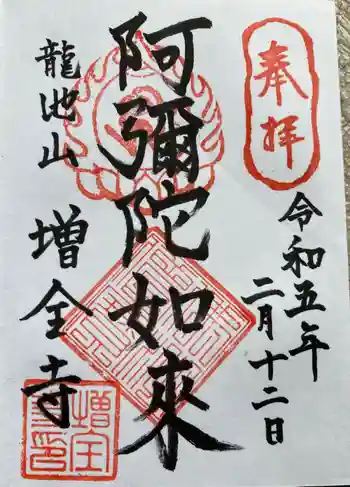 奉拝
令和五年
二月十二日
阿彌陀如來
龍池山
増全寺